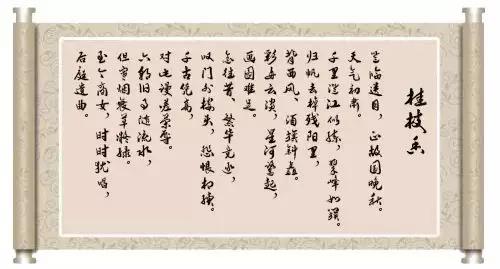 桂枝香
登临送目，正故国晚秋，
天气初肃。
千里澄江似练，翠峰如簇。
归帆去棹残阳里，
背西风、酒旗斜矗。
彩舟云淡，星河鹭起，
画图难足。
念往昔、繁华竞逐，
叹门外楼头，怨恨相续。
千古凭高，
对此谩嗟荣辱。
六朝旧事随流水，
但寒烟衰草凝绿。
至今商女，时时犹唱，
后庭遗曲。